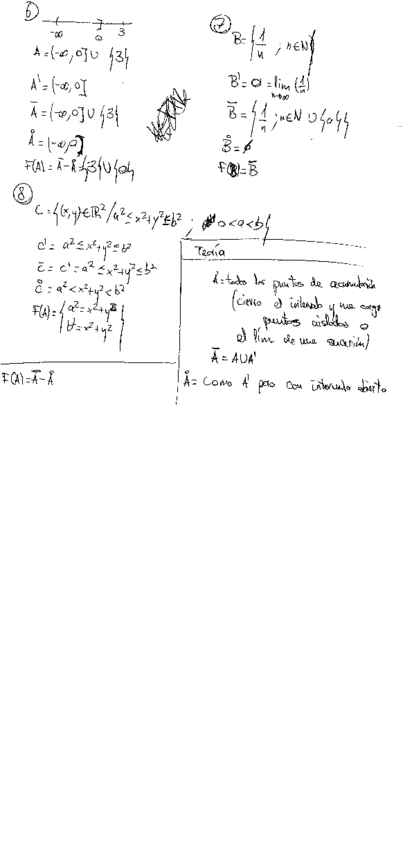 6
-∞ 0 3
A = (-∞, 0] ∪ {3}
A' = (-∞, 0]
Ā = (-∞, 0] ∪ {3}
Å = (-∞, 0)
F(A) = Ā - Å = {3} ∪ {0}
7
B = { 1/n ; n ∈ N }
B' = 0 = lim n→∞ (1/n)
B̄ = { 1/n ; n ∈ N ∪ {0} }
B̊ = ∅
F(B) = B̄
8
C = { (x,y) ∈ ℝ² / a² ≤ x² + y² ≤ b² ; 0 < a < b }
C' = a² ≤ x² + y² ≤ b²
C̄ = C' = a² ≤ x² + y² ≤ b²
C̊ = a² < x² + y² < b²
F(A) = { a² = x² + y²
b² = x² + y² }
F(A) = Ā - Å
Teoría
A = todos los puntos de acumulación
(cierro el intervalo y me cargo
puntos aislados o
el lím de una sucesión)
Ā = A ∪ A'
Å = Como A' pero con intervalo abierto